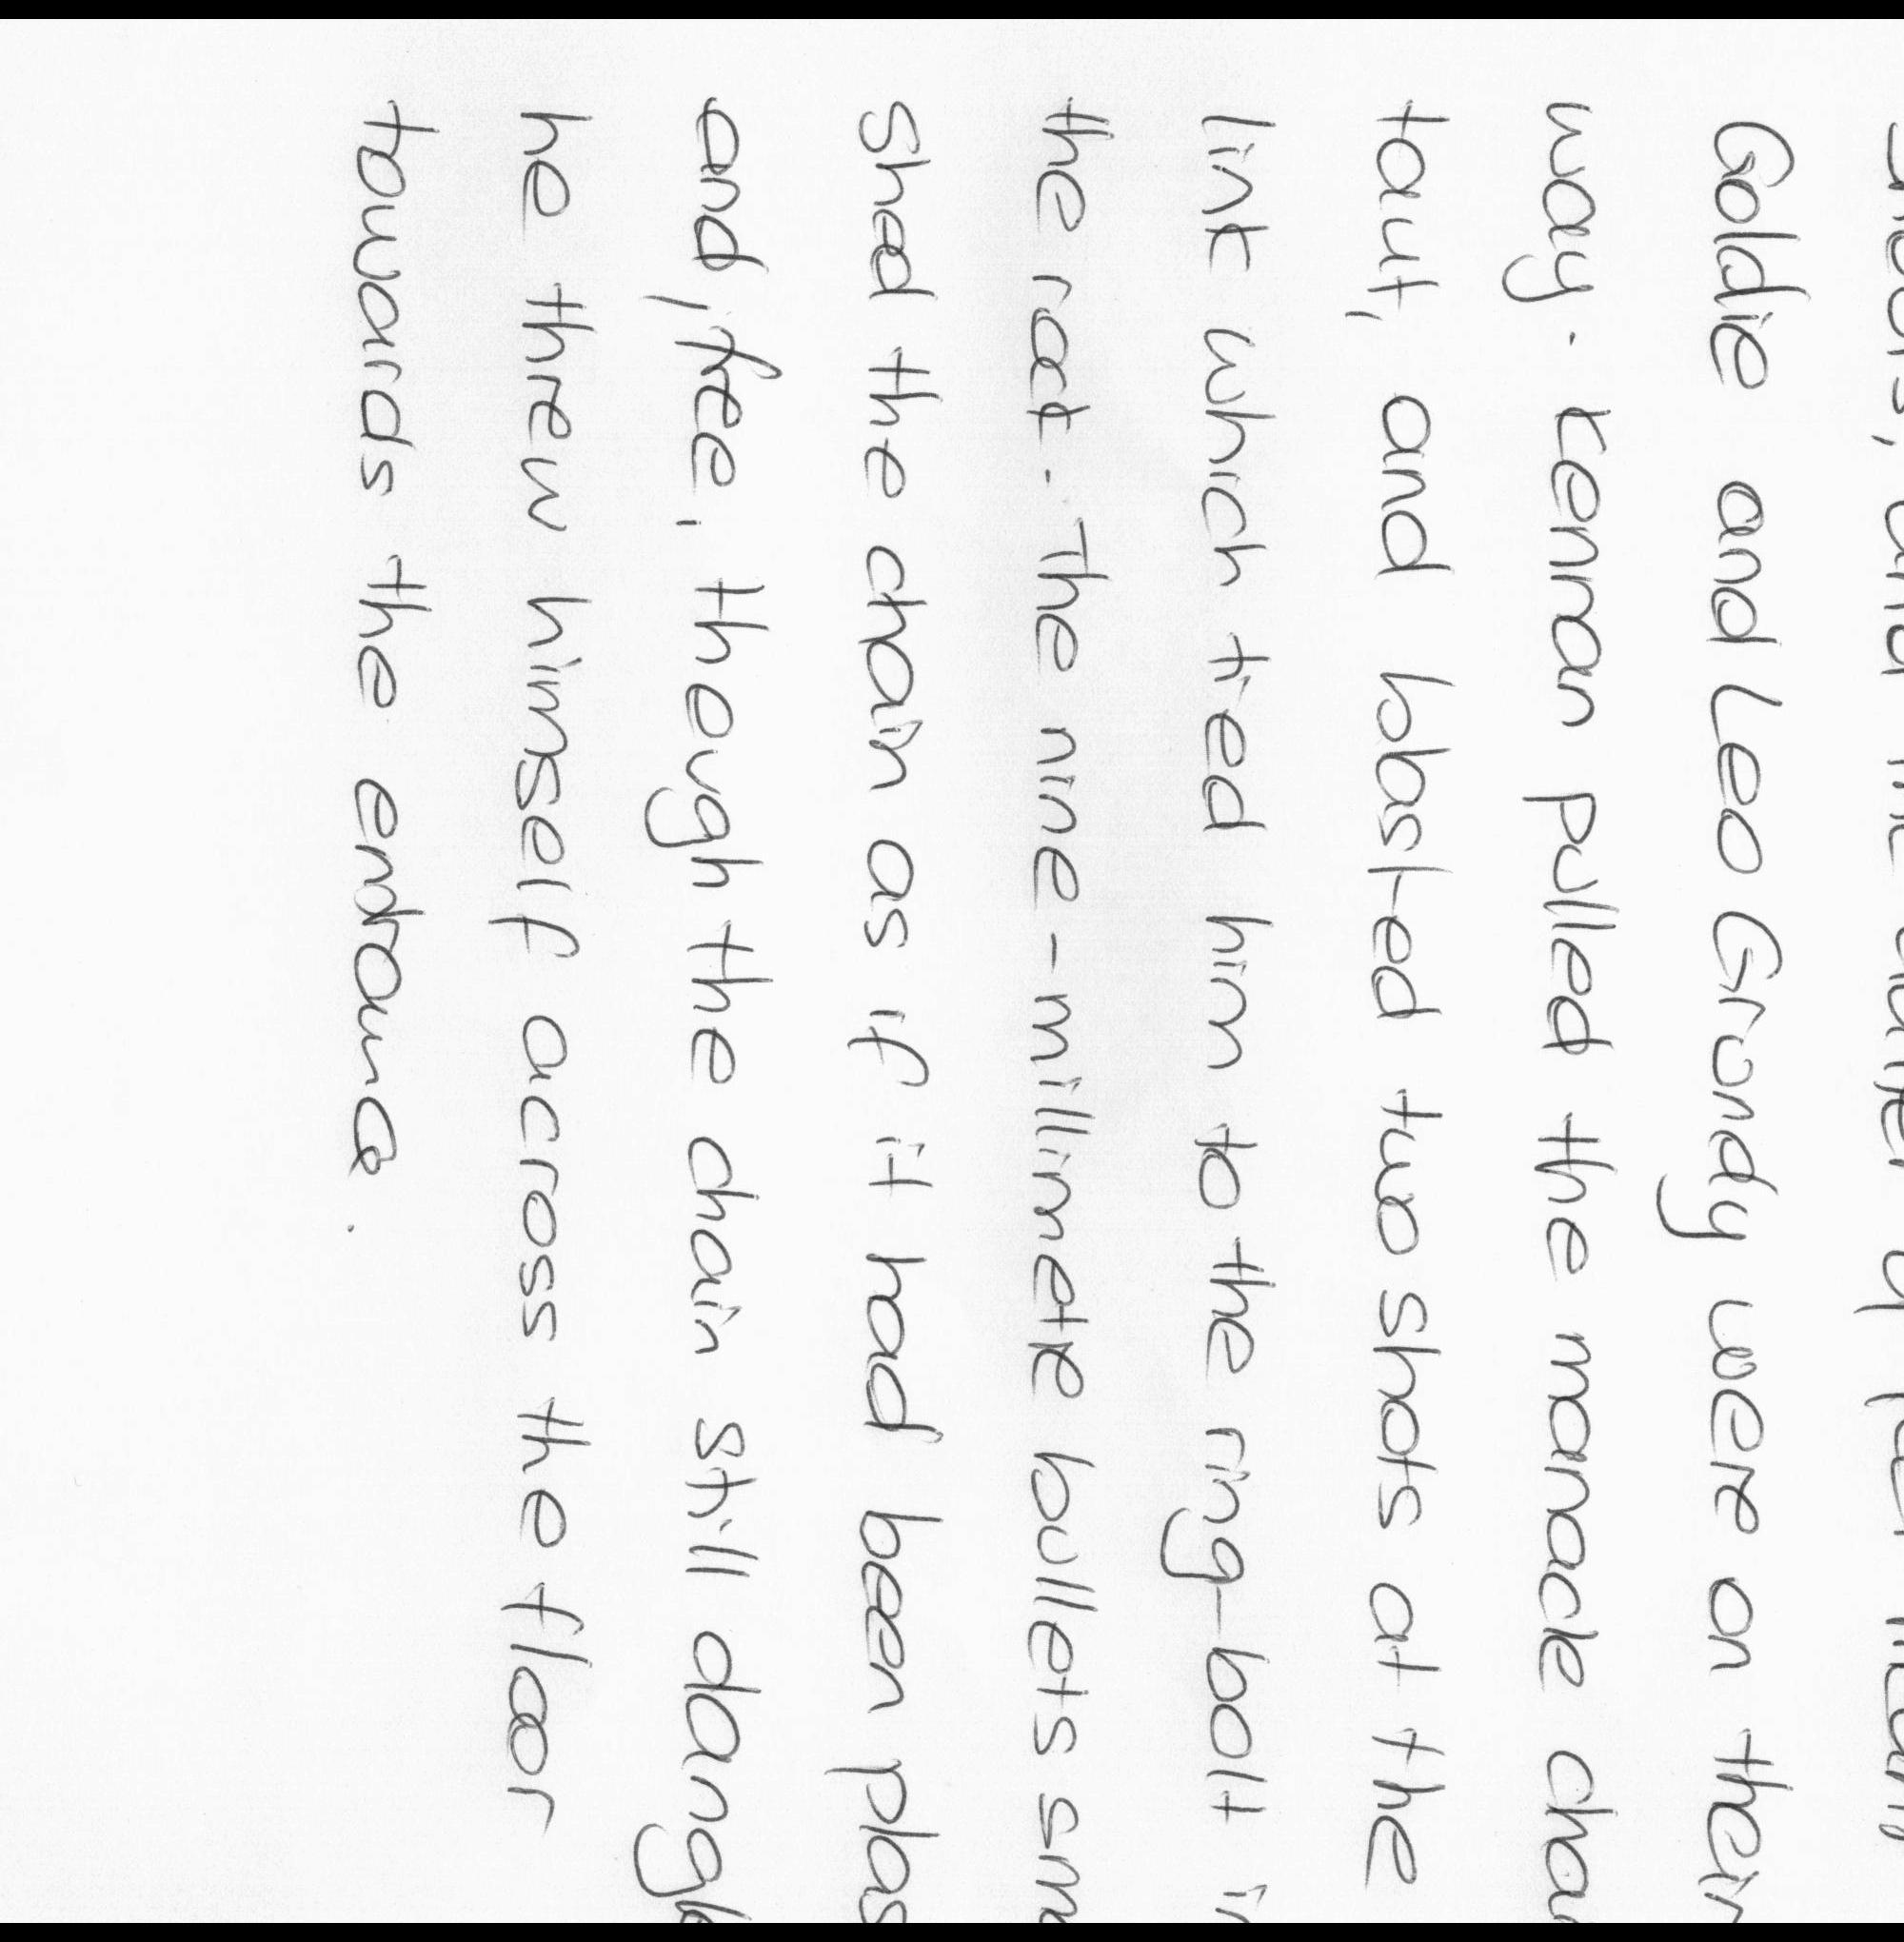 and the of
Goldie and Leo Grundy were on their
way. Kennan pulled the manacle
taut, and blasted two shots at the
link which tied him to the ring-bolt in
the rock. The nine-millimetre bullets sma
shed the chain as if it had been plas
and, free, though the chain still dangl
he threw himself across the floor
towards the